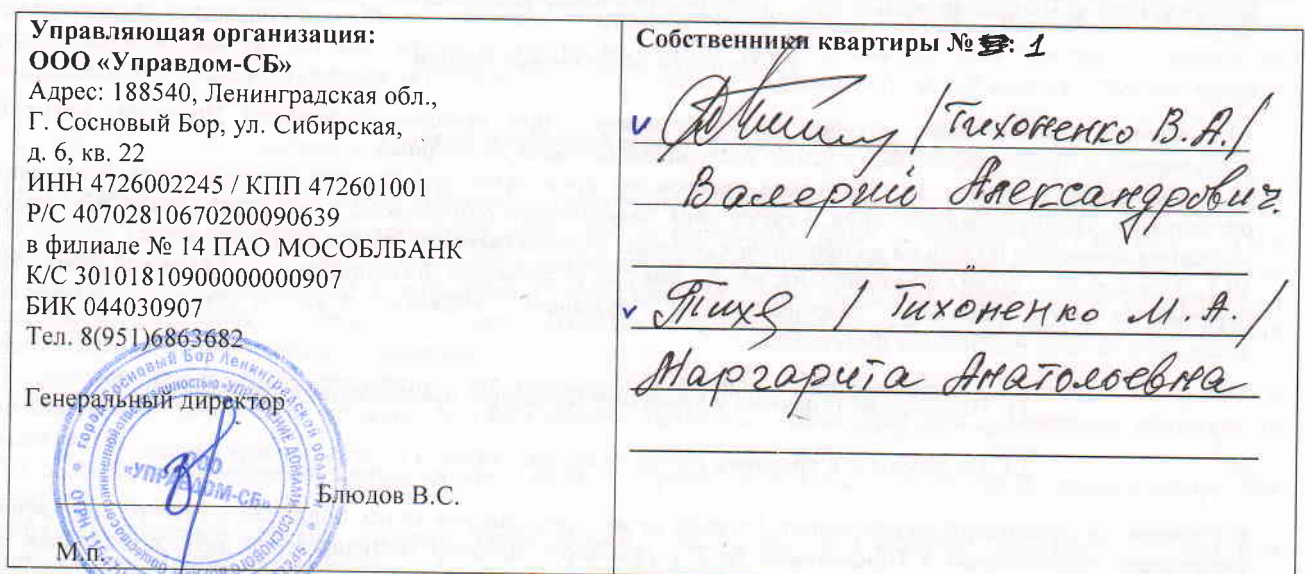 Управляющая организация:
ООО «Управдом-СБ»
Адрес: 188540, Ленинградская обл.,
Г. Сосновый Бор, ул. Сибирская,
д. 6, кв. 22
ИНН 4726002245 / КПП 472601001
Р/С 40702810670200090639
в филиале № 14 ПАО МОСОБЛБАНК
К/С 30101810900000000907
БИК 044030907
Тел. 8(951)6863682
Генеральный директор
Блюдов В.С.
М.п.
город Сосновый Бор Ленинградской области
ООО
«УПРАВДОМ-СБ»
Собственники квартиры №: 1
/ Тихоненко В.А./
Валерий Александрович.
/ Тихоненко М.А./
Маргарита Анатольевна